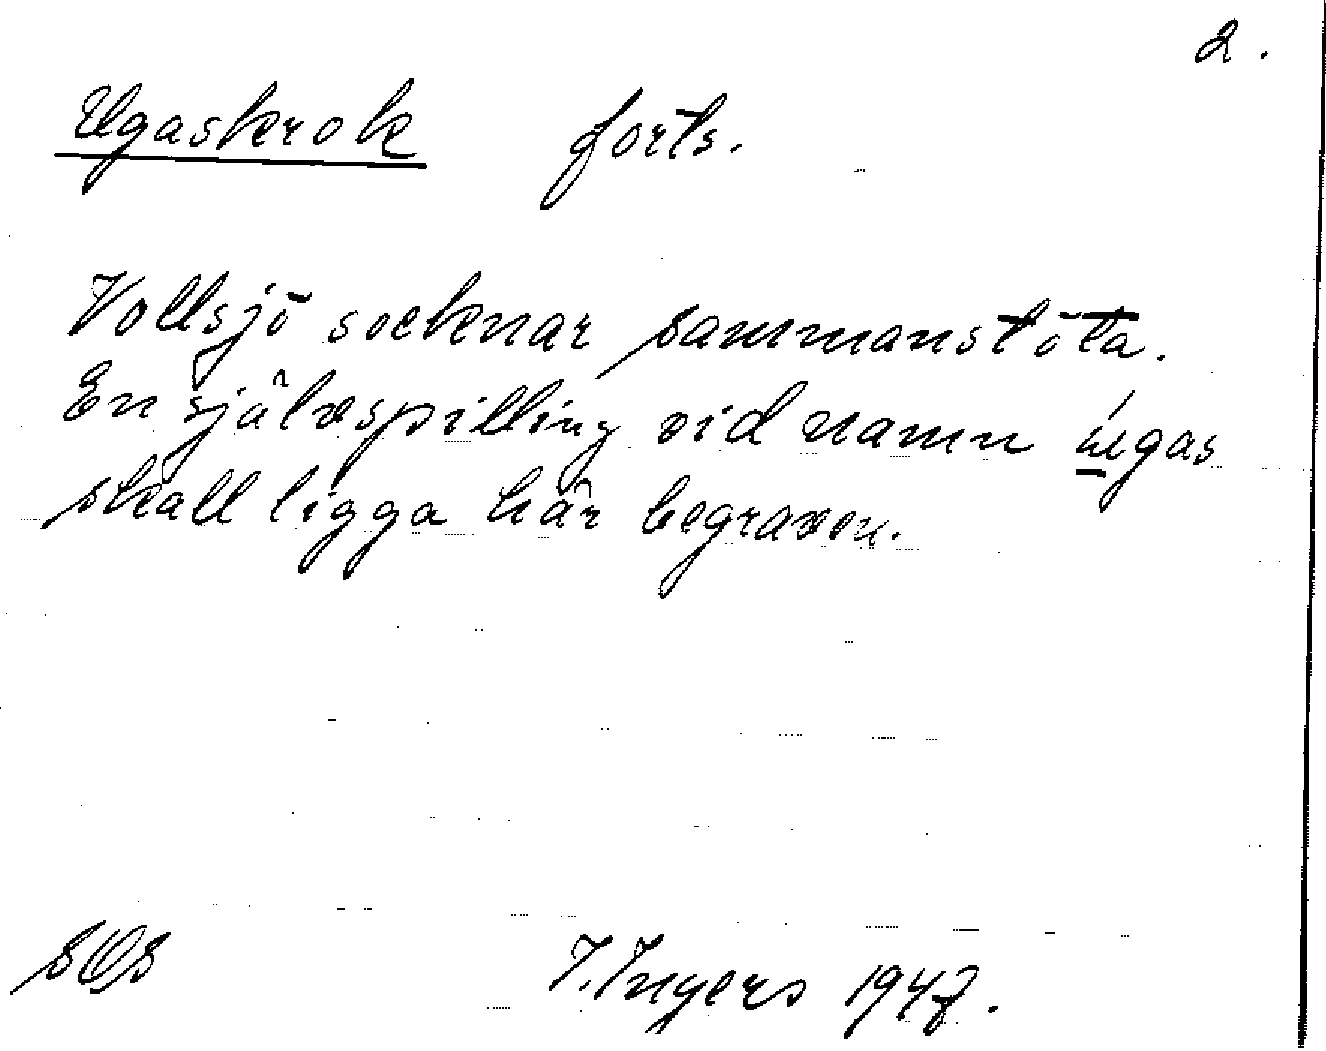 2.
Ugaskrok forts.
Vollsjö socknar sammanstöta.
En självspilling vid namn Ugas
skall ligga här begraven.
I. Ingers 1947.